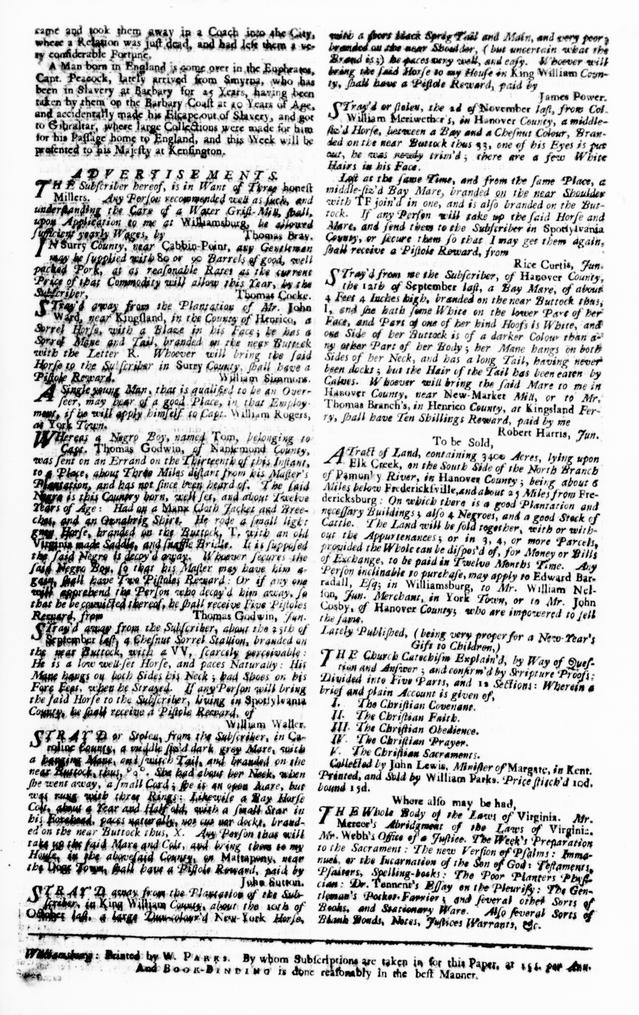 came and took them away in a Coach into the City,
where a Relation was just dead, and had left them a ve-
ry considerable Fortune.
A Man born in England is come over in the Euphrates,
Capt. Peacock, lately arrived from Smyrna, who has
been in Slavery at Barbary for 25 Years, having been
taken by them on the Barbary Coast at 20 Years of Age,
and accidentally made his Escape out of Slavery, and got
to Gibraltar, where large Collections were made for him
for his Passage home to England, and this Week will be
presented to his Majesty at Kensington.
ADVERTISEMENTS.
THE Subscriber hereof, is in Want of Three honest
Millers. Any Person recommended well as such, and
understanding the Care of a Water Grist-Mill, shall,
upon Application to me at Williamsburg, be allowed
sufficient yearly Wages, by Thomas Bray.
IN Surry County, near Cabbin-Point, any Gentleman
may be supplied with 80 or 90 Barrels of good, well
packed Pork, at as reasonable Rates as the current
Price of that Commodity will allow this Year, by the
Subscriber, Thomas Cocke.
STray'd away from the Plantation of Mr. John
Ward, near Kingsland, in the County of Henrico, a
Sorrel Horse, with a Blaze in his Face; he has a
Sorrel Mane and Tail, branded on the near Buttock
with the Letter R. Whoever will bring the said
Horse to the Subscriber in Surry County, shall have a
Pistole Reward. William Simmons.
A Single young Man, that is qualified to be an Over-
seer, may hear of a good Place, in that Employ-
ment, if he will apply himself to Capt. William Rogers,
at York Town.
WHereas a Negro Boy, named Tom, belonging to
Capt. Thomas Godwin, of Nansemond County,
was sent on an Errand on the Thirteenth of this Instant,
to a Place, about Three Miles distant from his Master's
Plantation, and has not since been heard of. The said
Negro is this Country born, well set, and about Twelve
Years of Age: Had on a Manx Cloth Jacket and Bree-
ches, and an Oznabrig Shirt. He rode a small light
grey Horse, branded on the Buttock, T, with an old
Virginia made Saddle, and snaffle Bridle. It is supposed
the said Negro is decoy'd away. Whoever secures the
said Negro Boy, so that his Master may have him a-
gain, shall have Two Pistoles Reward: Or if any one
will apprehend the Person who decoy'd him away, so
that he be convicted thereof, he shall receive Five Pistoles
Reward, from Thomas Godwin, jun.
STray'd away from the Subscriber, about the 25th of
September last, a Chesnut Sorrel Stallion, branded on
the near Buttock, with a VV, scarcely perceivable:
He is a low well-set Horse, and paces Naturally: His
Mane hangs on both Sides his Neck; had Shoes on his
Fore Feet, when he Strayed. If any Person will bring
the said Horse to the Subscriber, living in Spotsylvania
County, he shall receive a Pistole Reward, of
William Waller.
STRAY'D or Stolen, from the Subscriber, in Ca-
roline County, a middle siz'd dark grey Mare, with
a hanging Mane, and switch Tail, and branded on the
near Buttock, thus, She had about her Neck, when
she went away, a small Cord; she is an open Mare, but
was rung with three Rings: Likewise a Bay Horse
Colt, about a Year and Half old, with a small Star in
his Forehead, paces naturally, not cut nor dockt, brand-
ed on the near Buttock thus, X. Any Person that will
take up the said Mare and Colt, and bring them to my
House, in the abovesaid County, on Mattapony, near
the Dogs Town, shall have a Pistole Reward, paid by
John Sutton.
STRAY'D away from the Plantation of the Sub-
scriber, in King William County, about the 10th of
October last, a large Dun-colour'd New-York Horse,
with a short black Sprig Tail and Main, and very poor;
branded on the near Shoulder, (but uncertain what the
Brand is;) he paces very well, and easy. Whoever will
bring the said Horse to my House in King William Coun-
ty, shall have a Pistole Reward, paid by
James Power.
STray'd or stolen, the 2d of November last, from Col.
William Meriwether's, in Hanover County, a middle-
siz'd Horse, between a Bay and a Chesnut Colour, Bran-
ded on the near Buttock thus 33, one of his Eyes is put
out, he was newly trim'd; there are a few White
Hairs in his Face.
Lost at the same Time, and from the same Place, a
middle-siz'd Bay Mare, branded on the near Shoulder
with TF join'd in one, and is also branded on the But-
tock. If any Person will take up the said Horse and
Mare, and send them to the Subscriber in Spotsylvania
County, or secure them so that I may get them again,
shall receive a Pistole Reward, from
Rice Curtis, Jun.
STray'd from me the Subscriber, of Hanover County,
the 12th of September last, a Bay Mare, of about
4 Feet 4 Inches high, branded on the near Buttock thus,
I, and she hath some White on the lower Part of her
Face, and Part of one of her hind Hoofs is White, and
one Side of her Buttock is of a darker Colour than a-
ny other Part of her Body; her Mane hangs on both
Sides of her Neck, and has a long Tail, having never
been dockt; but the Hair of the Tail has been eaten by
Calves. Whoever will bring the said Mare to me in
Hanover County, near New-Market Mill, or to Mr.
Thomas Branch's, in Henrico County, at Kingsland Fer-
ry, shall have Ten Shillings Reward, paid by me
Robert Harris, Jun.
To be Sold,
A Tract of Land, containing 3400 Acres, lying upon
Elk Creek, on the South Side of the North Branch
of Pamunky River, in Hanover County; being about 6
Miles below Fredericksville, and about 25 Miles from Fre-
dericksburg: On which there is a good Plantation and
necessary Buildings; also 4 Negroes, and a good Stock of
Cattle. The Land will be sold together, with or with-
out the Appurtenances; or in 3, 4, or more Parcels,
provided the Whole can be dispos'd of, for Money or Bills
of Exchange, to be paid in Twelve Months Time. Any
Person inclinable to purchase, may apply to Edward Bar-
radall, Esq; in Williamsburg, to Mr. William Nel-
son, Jun. Merchant, in York Town, or to Mr. John
Cosby, of Hanover County; who are impowered to sell
the same.
Lately Published, (being very proper for a New-Year's
Gift to Children,)
THE Church Catechism Explain'd, by Way of Ques-
tion and Answer; and confirm'd by Scripture Proofs:
Divided into Five Parts, and 12 Sections: Wherein a
brief and plain Account is given of,
I. The Christian Covenant.
II. The Christian Faith.
III. The Christian Obedience.
IV. The Christian Prayer.
V. The Christian Sacraments.
Collected by John Lewis, Minister of Margate, in Kent.
Printed, and Sold by William Parks. Price stitch'd 10d.
bound 15d.
Where also may be had,
THE Whole Body of the Laws of Virginia. Mr.
Mercer's Abridgment of the Laws of Virginia.
Mr. Webb's Office of a Justice. The Week's Preparation
to the Sacrament: The new Version of Psalms: Imma-
nuel, or the Incarnation of the Son of God: Testaments,
Psalters, Spelling-books: The Poor Planters Physi-
cian: Dr. Tennent's Essay on the Pleurisy: The Gen-
tleman's Pocket-Farrier; and several other Sorts of
Books, and Stationary Ware. Also several Sorts of
Blank Bonds, Notes, Justices Warrants, &c.
Williamsburg: Printed by W. PARKS. By whom Subscriptions are taken in for this Paper, at 15s. per Ann.
And BOOK-BINDING is done reasonably in the best Manner.